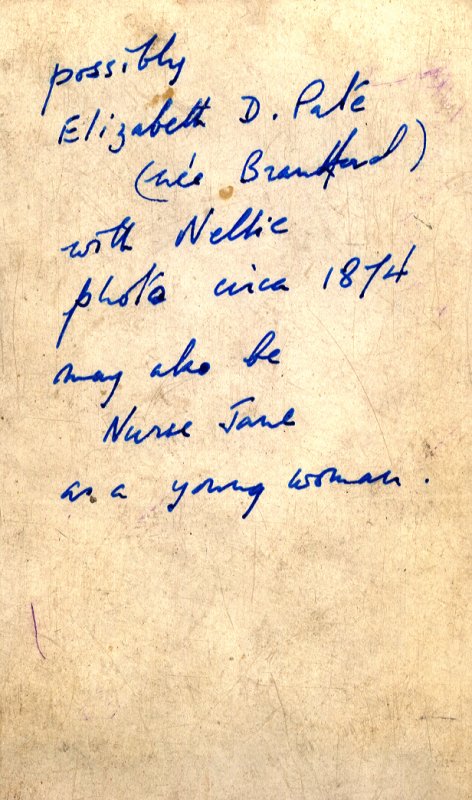 possibly
Elizabeth D. Pate
(née
with Nellie
photo circa 1874
may also be
Nurse Jane
as a young woman.